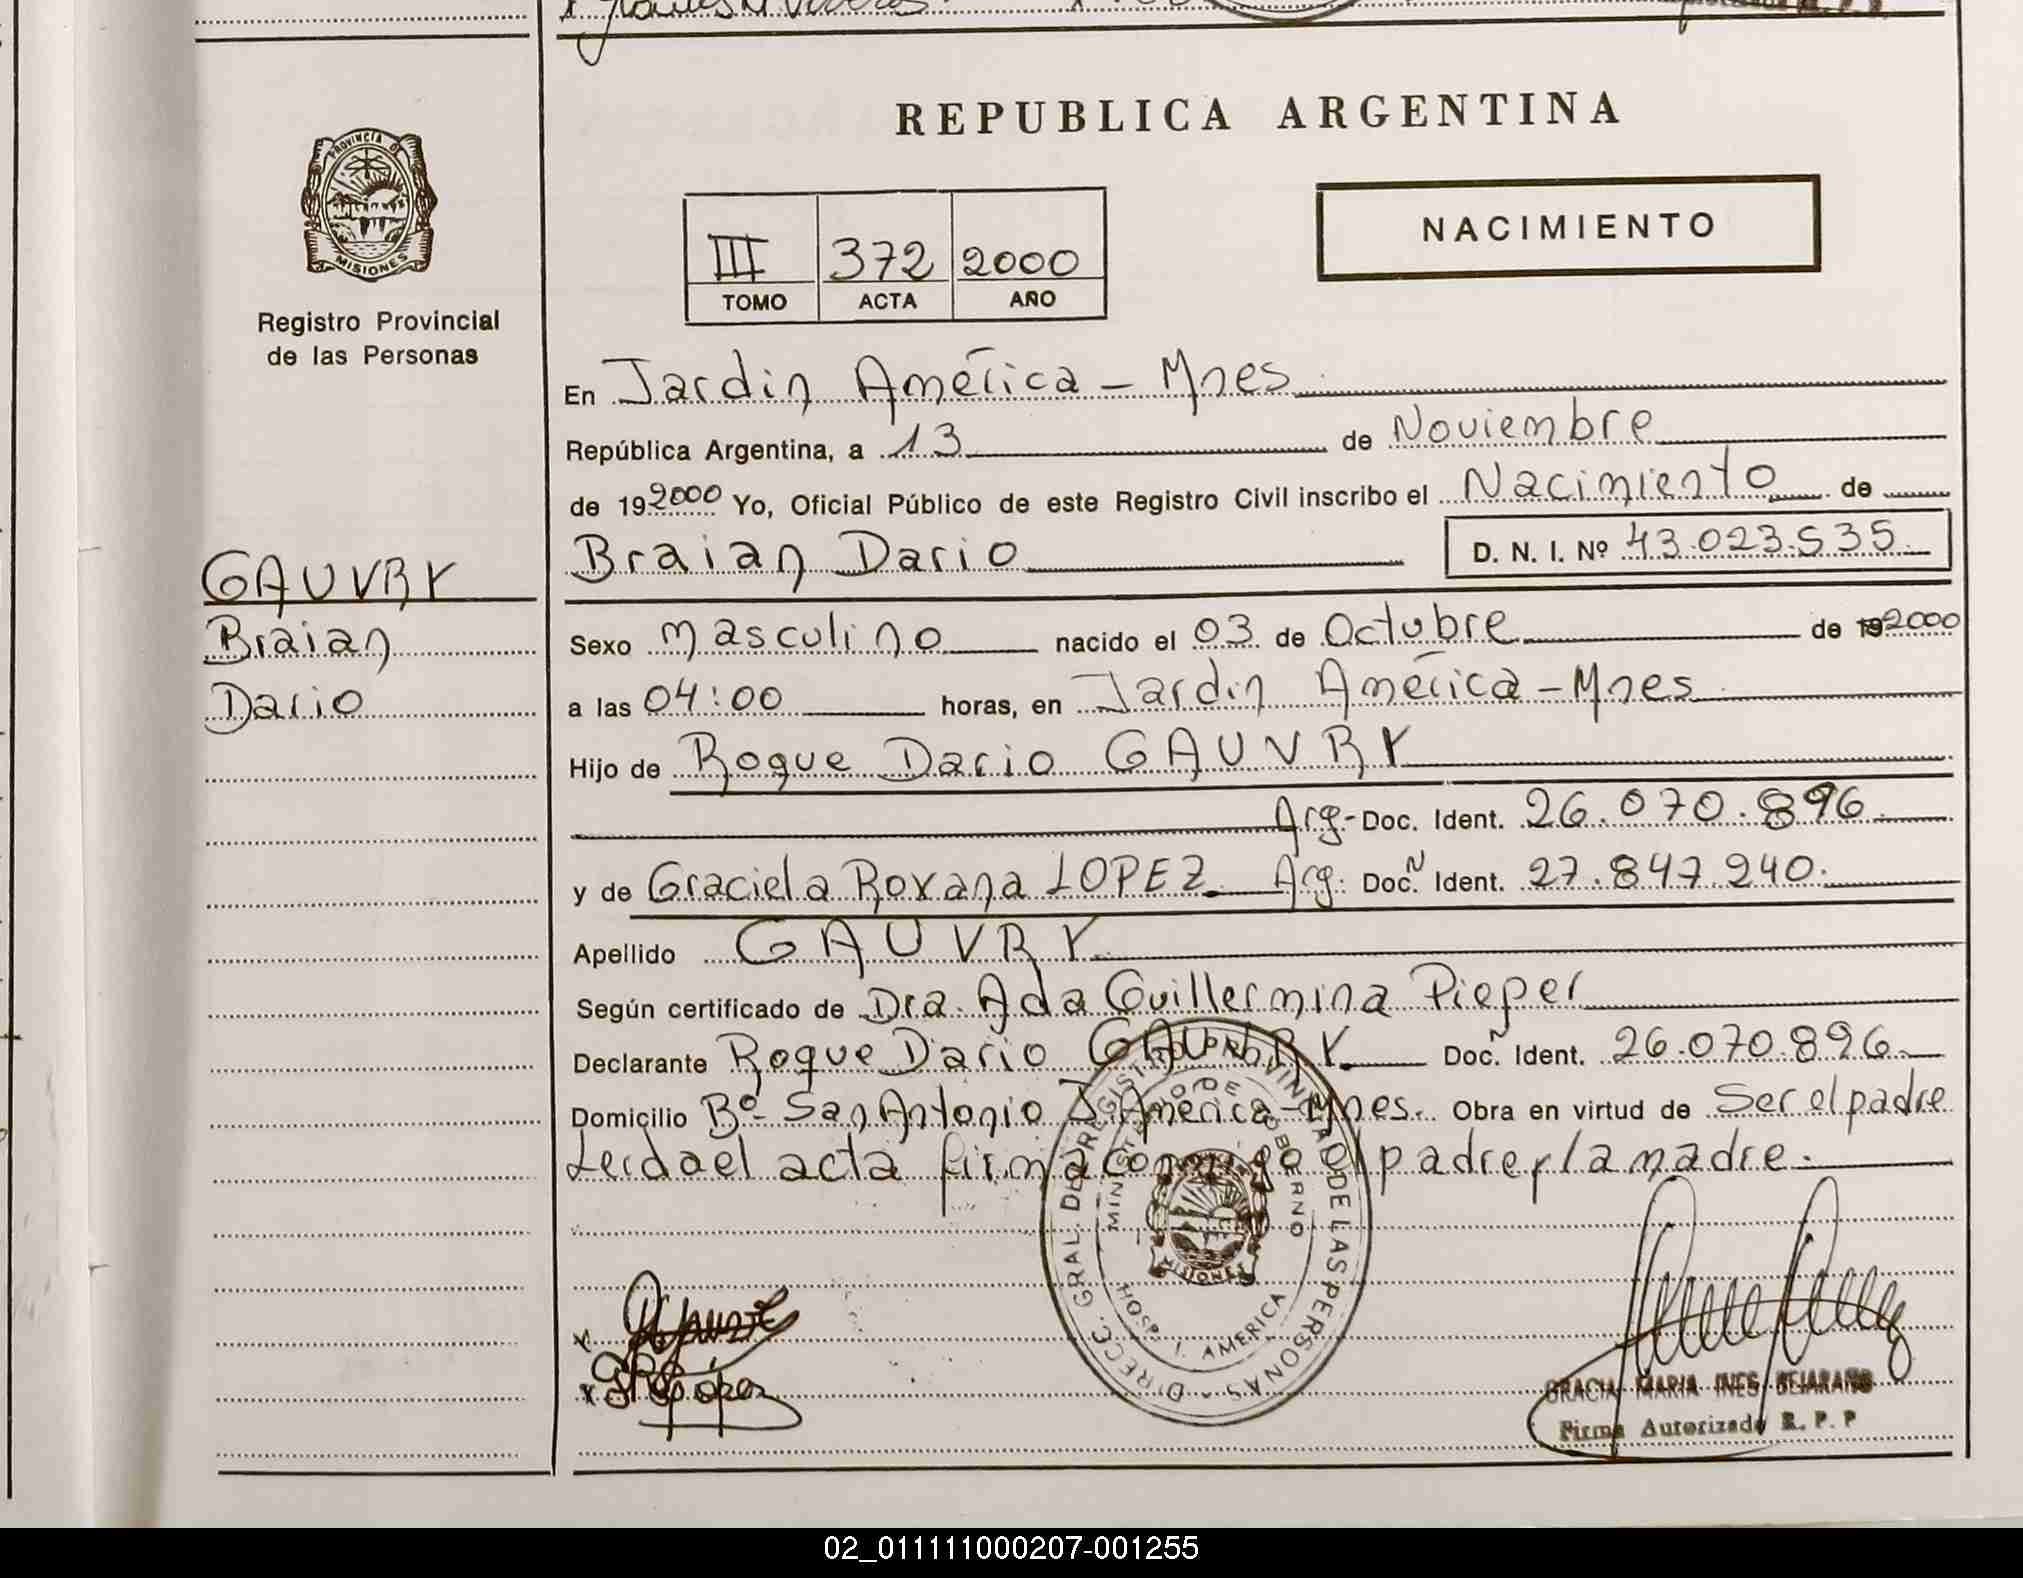 REPUBLICA ARGENTINA
PROVINCIA DE
MISIONES
Registro Provincial
de las Personas
III 372 2000
TOMO ACTA AÑO
NACIMIENTO
En Jardin América - Mnes.
República Argentina, a 13 de Noviembre
de 192000 Yo, Oficial Público de este Registro Civil inscribo el Nacimiento de
Braian Dario D. N. I. Nº 43.023.535
GAUVRY
Braian
Dario
Sexo masculino nacido el 03 de Octubre de 192000
a las 04:00 horas, en Jardin América - Mnes
Hijo de Roque Dario GAUVRY
Arg- Doc. Ident. 26.070.896
y de Graciela Roxana LOPEZ. Arg. Doc. N Ident. 27.847.240.
Apellido GAUVRY
Según certificado de Dra. Ada Guillermina Pieper
Declarante Roque Dario GAUVRY Doc. Ident. 26.070.896
Domicilio Bº San Antonio J. América - Mnes. Obra en virtud de Ser el padre
Leida el acta firma conmigo el padre y la madre.
DIRECC. GRAL. DEL REGISTRO PROVINCIAL DE LAS PERSONAS
MINISTERIO DE GOBIERNO
MISIONES
HOSP. J. AMERICA
x
x López
GRACIA MARIA INES BEJARANO
Firma Autorizada R. P. P
02_011111000207-001255